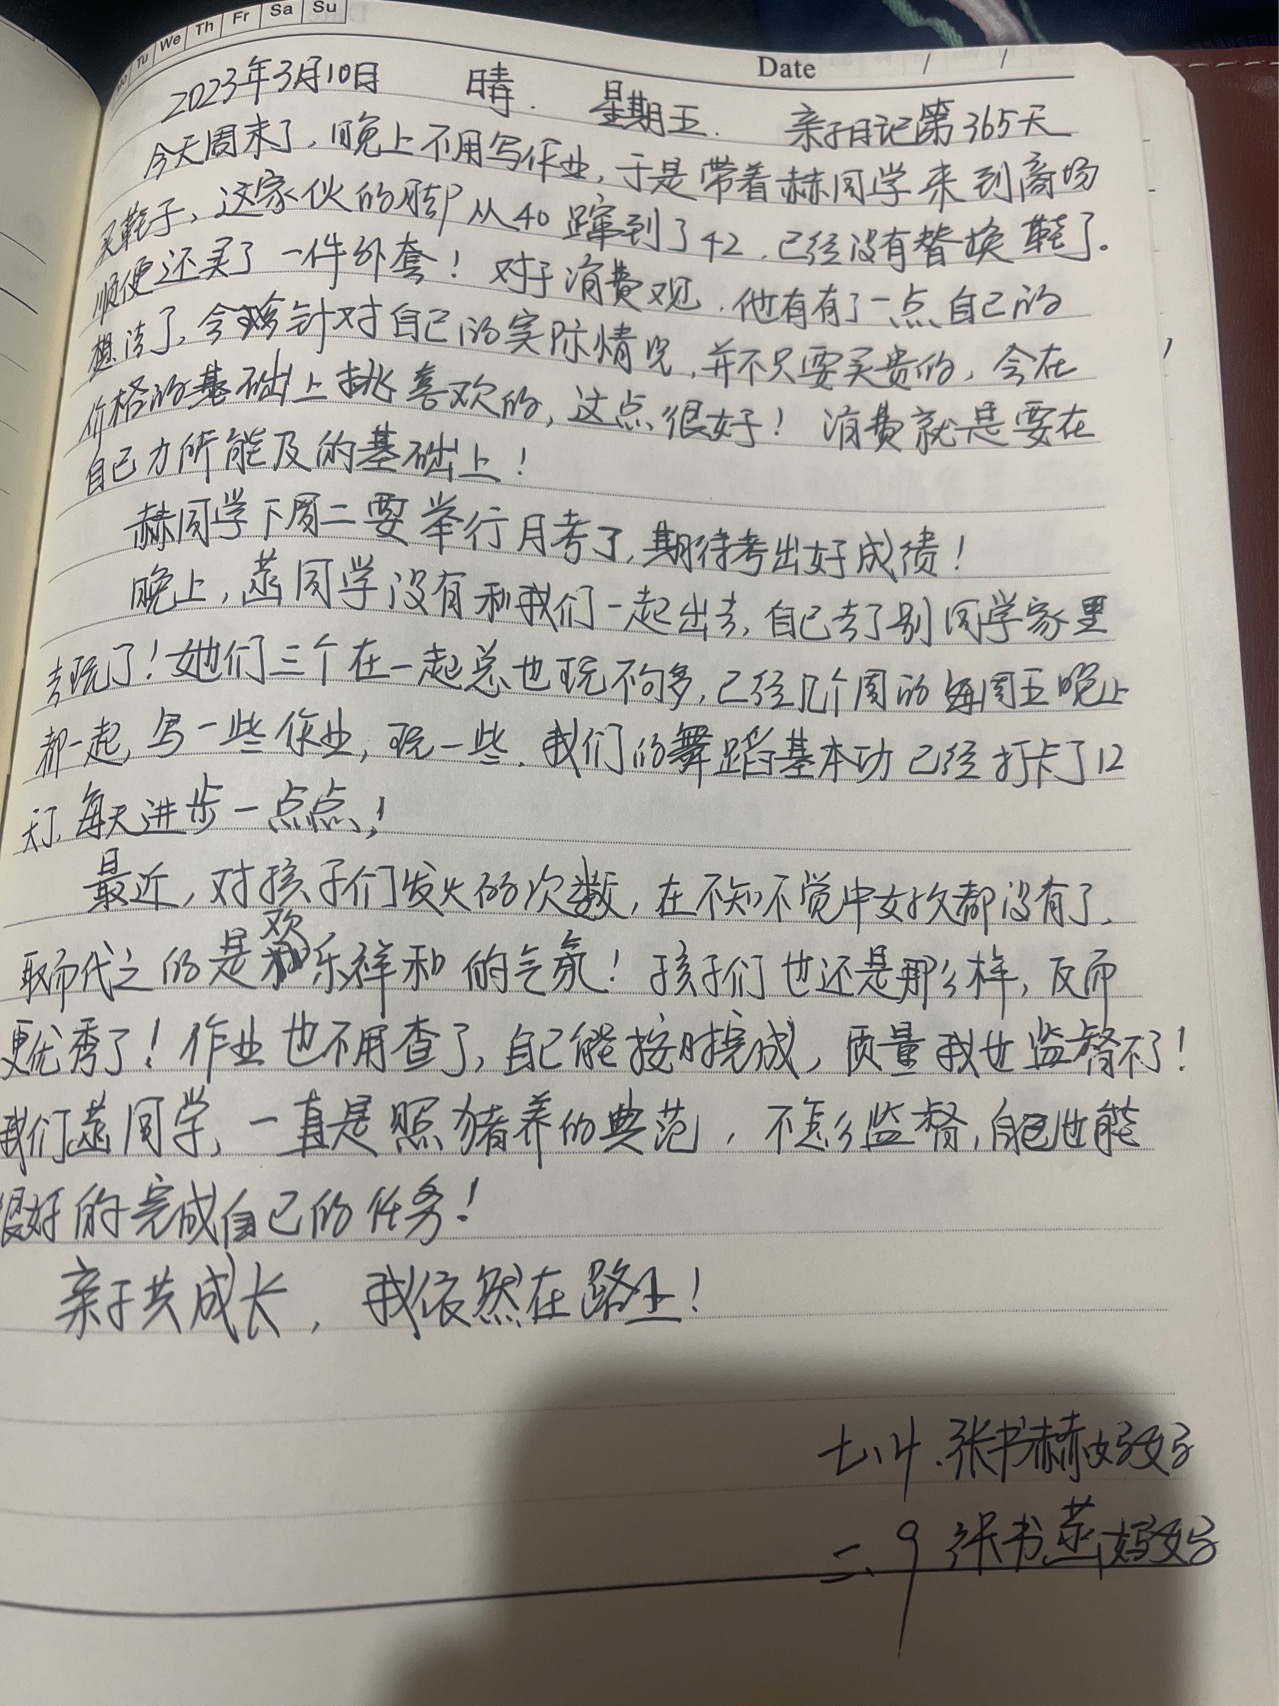 Tu We Th Fr Sa Su
Date / /
2023年3月10日 晴. 星期五. 亲子日记第365天
今天周末了,晚上不用写作业,于是带着赫同学来到商场
买鞋子、这家伙的脚从40蹿到了42.已经没有替换鞋了.
顺便还买了一件外套!对于消费观.他有有了一点自己的
想法了,会针对自己的实际情况,并不只要买贵的,会在
价格的基础上挑喜欢的,这点很好!消费就是要在
自己力所能及的基础上!
赫同学下周二要举行月考了,期待考出好成绩!
晚上,同学没有和我们一起出去,自己去了别同学家里
去玩了!她们三个在一起总也玩不够多,已经几个周的每周五晚上
都一起,写一些作业,玩一些.我们的舞蹈基本功已经打卡了12
天了.每天进步一点点!
最近,对孩子们发火的次数,在不知不觉中好久都没有了.
取而代之的是欢乐祥和的气氛!孩子们也还是那么样,反而
更优秀了!作业也不用查了,自己能按时完成,质量我也监督不了!
我们同学,一直是照猪养的典范,不怎么监督,自己也能
很好的完成自己的任务!
亲子共成长,我依然在路上!
七、4.张书赫妈妈
二.9 张书妈妈